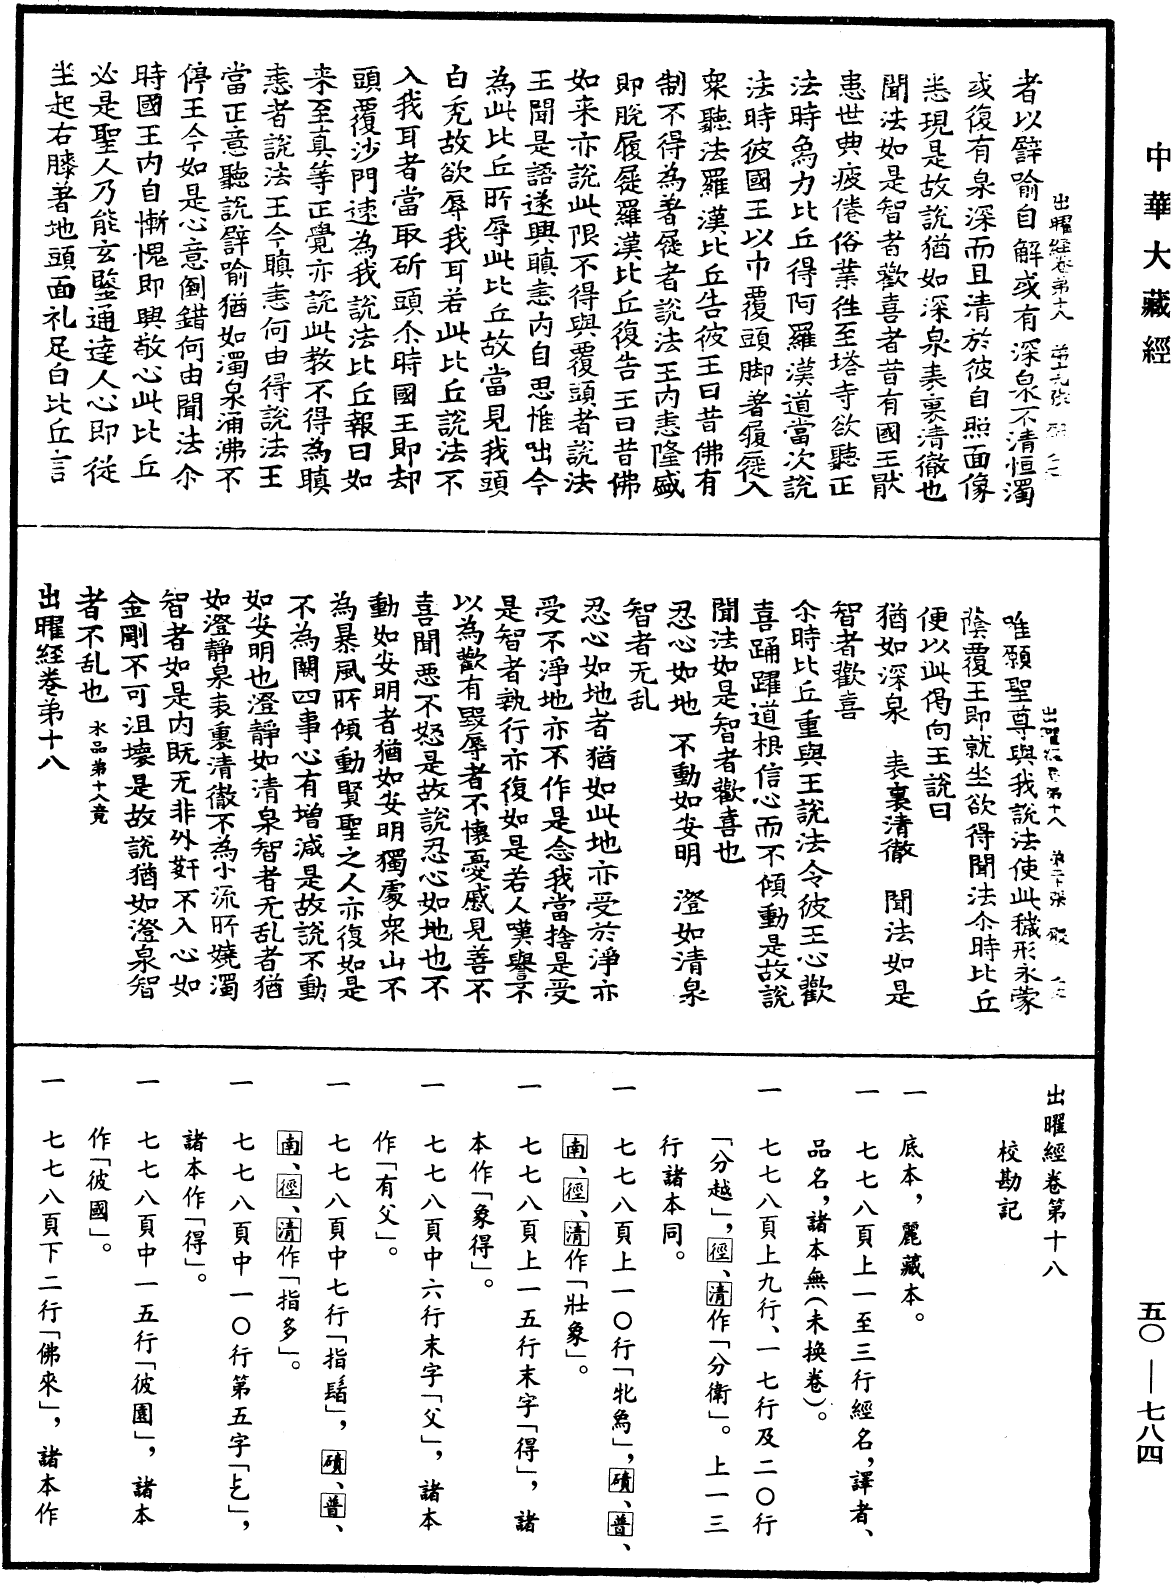 中華大藏經
出曜經卷第十八 第十九張
者以譬喻自解或有深泉不清恒濁
或復有泉深而且清於彼自照面像
悉現是故說猶如深泉表裏清徹也
聞法如是智者歡喜者昔有國王猒
患世典疲倦俗業往至塔寺欲聽正
法時為力比丘得阿羅漢道當次說
法時彼國王以巾覆頭脚著履屣入
衆聽法羅漢比丘告彼王曰昔佛有
制不得為著屣者說法王內恚隆盛
即脫履屣羅漢比丘復告王曰昔佛
如来亦說此限不得與覆頭者說法
王聞是語遂興瞋恚內自思惟咄今
為此比丘所辱此比丘故當見我頭
白禿故欲辱我耳若此比丘說法不
入我耳者當取斫頭尒時國王即却
頭覆沙門速為我說法比丘報曰如
来至真等正覺亦說此教不得為瞋
恚者說法王今瞋恚何由得說法王
當正意聽說譬喻猶如濁泉涌沸不
停王今如是心意倒錯何由聞法尒
時國王內自慚愧即興敬心此比丘
必是聖人乃能玄鑒通達人心即從
坐起右膝著地頭面礼足白比丘言
出曜經卷第十八 第二十張
唯願聖尊與我說法使此穢形永蒙
陰覆王即就坐欲得聞法尒時比丘
便以此偈向王說曰
猶如深泉 表裏清徹 聞法如是
智者歡喜
尒時比丘重與王說法令彼王心歡
喜踊躍道根信心而不傾動是故說
聞法如是智者歡喜也
忍心如地 不動如安明 澄如清泉
智者无乱
忍心如地者猶如此地亦受於淨亦
受不淨地亦不作是念我當捨是受
是智者執行亦復如是若人嘆譽不
以為歡有毀辱者不懷憂慼見善不
喜聞惡不怒是故說忍心如地也不
動如安明者猶如安明獨處衆山不
為暴風所傾動賢聖之人亦復如是
不為闕四事心有增減是故說不動
如安明也澄靜如清泉智者无乱者猶
如澄靜泉表裏清徹不為小流所嬈濁
智者如是內既无非外姧不入心如
金剛不可沮壞是故說猶如澄泉智
者不乱也 水品第十八竟
出曜經卷第十八
出曜經卷第十八
校勘記
一 底本，麗藏本。
一 七七八頁上一至三行經名，譯者、
品名，諸本無（未換卷）。
一 七七八頁上九行、一七行及二〇行
「分越」，徑、清作「分衛」。上一三
行諸本同。
一 七七八頁上一〇行「牝為」，磧、普、
南、徑、清作「壯象」。
一 七七八頁上一五行末字「得」，諸
本作「象得」。
一 七七八頁中六行末字「父」，諸本
作「有父」。
一 七七八頁中七行「指髻」，磧、普、
南、徑、清作「指多」。
一 七七八頁中一〇行第五字「乞」，
諸本作「得」。
一 七七八頁中一五行「彼園」，諸本
作「彼國」。
一 七七八頁下二行「佛來」，諸本作
五〇—七八四